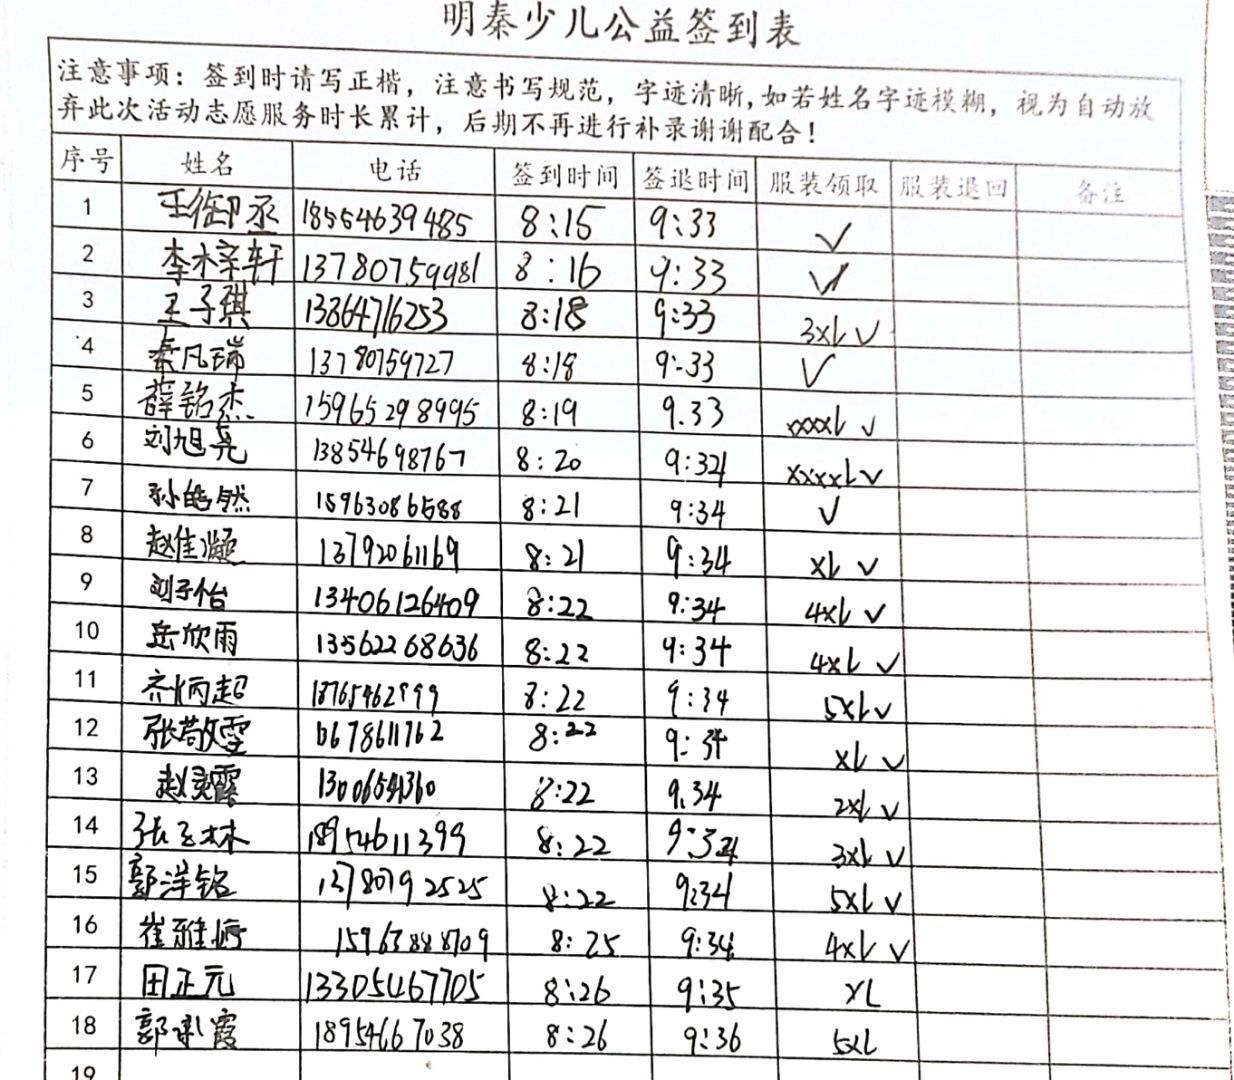 明秦少儿公益签到表
注意事项：签到时请写正楷，注意书写规范，字迹清晰,如若姓名字迹模糊，视为自动放
弃此次活动志愿服务时长累计，后期不再进行补录谢谢配合！
序号 姓名 电话 签到时间 签退时间 服装领取 服装退回 备注
1 王御丞 18554639485 8:15 9:33 ✓
2 李木辛轩 13780759981 8:16 9:33 ✓
3 王子琪 13864716253 8:18 9:33 3XL ✓
4 秦凡瑞 13780759727 8:18 9:33 ✓
5 薛铭杰 15965298995 8:19 9.33 xxxxL ✓
6 刘旭尧 13854698767 8:20 9:34 xxxxL ✓
7 孙皓然 15963086588 8:21 9:34 ✓
8 赵佳凝 13792061169 8:21 9:34 XL ✓
9 刘子怡 13406126409 8:22 9:34 4XL ✓
10 岳欣雨 13562268636 8:22 9:34 4XL ✓
11 齐炳超 8:22 9:34 5XL ✓
12 张敬雯 8:22 9:34 XL ✓
13 赵灵霖 8:22 9.34 2XL ✓
14 张玉林 18954611399 8:22 9:34 3XL ✓
15 郭洋铭 13780792525 8:22 9:34 5XL ✓
16 崔雅婷 15963888709 8:25 9:34 4XL ✓
17 田正元 13305467705 8:26 9:35 XL
18 郭彩霞 18954667038 8:26 9:36 5XL
19